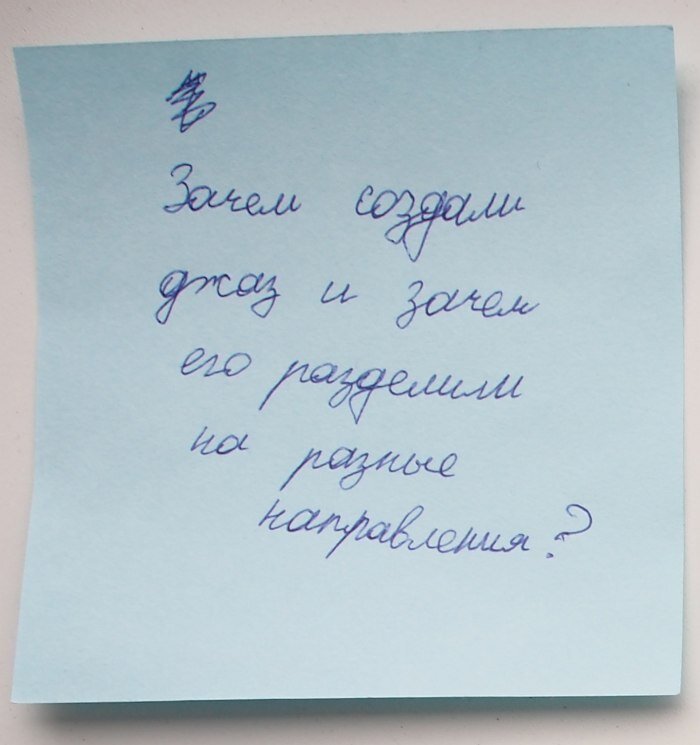 Зачем создали
джаз и зачем
его разделили
на разные
направления?